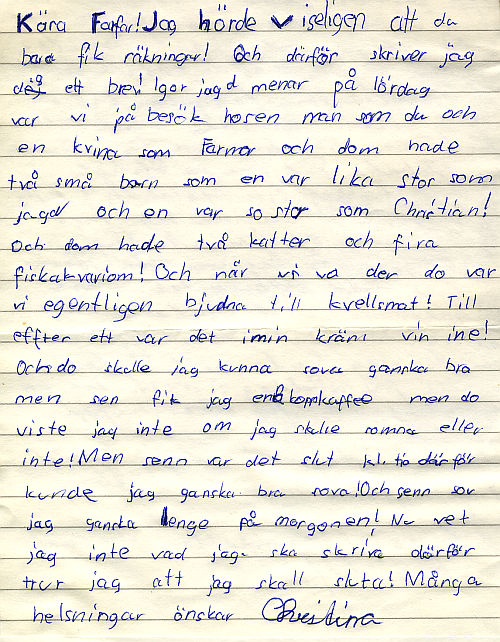 Kära Farfar! Jag hörde viseligen att du
bara fik räkningar! Och därför skriver jag
dej ett brev! Igor jag d menar på lördag
var vi på besök hosen man som du och
en kvina som Farmor och dom hade
två små barn som en var lika stor som
jagd och en var so stor som Christian!
Och dom hade två katter och fira
fiskakvariom! Och när vi va der do var
vi egentligen bjudna till kvellsmat! Till
effter ett var det imin kräm vin ine!
Och do skulle jag kunna sova ganska bra
men sen fik jag en koppkaffee men do
viste jag inte om jag skulle somna eller
inte! Men senn var det slut kl. tio därför
kunde jag ganska bra sova! Och senn sov
jag ganska lenge på morgonen! Nu vet
jag inte vad jag ska skriva därför
trur jag att jag skall sluta! Många
helsningar önskar Christina